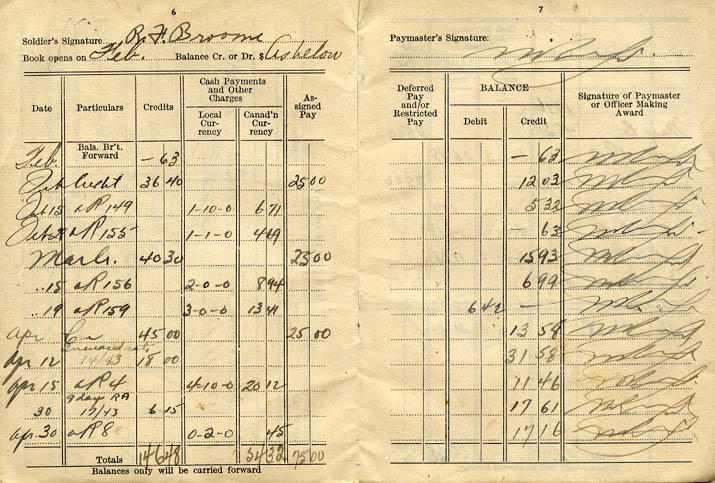 6
Soldier's Signature R. F. Broome
Book opens on Feb. Balance Cr. or Dr. $ As below
Date Particulars Credits Cash Payments and Other Charges Local Currency Canad'n Currency Assigned Pay
Feb. Bals. Br't. Forward — 63
Feb Credit 36 40 25 00
Feb 15 AR 149 1-10-0 6 71
AR 155 1-1-0 4 69
March 40 30 25 00
" 15 AR 156 2-0-0 8 94
" 19 AR 159 3-0-0 13 41
Apr Cr 45 00 25 00
Apr 12 14/43 18 00
Apr 15 AR 4 4-10-0 20 12
30 9 day RA 17/43 6 15
Apr. 30 AR 8 0-2-0 45
Totals 146 48 54 32 75 00
Balances only will be carried forward
7
Paymaster's Signature:
Deferred Pay and/or Restricted Pay BALANCE Debit Credit Signature of Paymaster or Officer Making Award
— 63
12 03
5 32
— 63
15 93
6 99
6 42 —
13 58
31 58
11 46
17 61
17 16